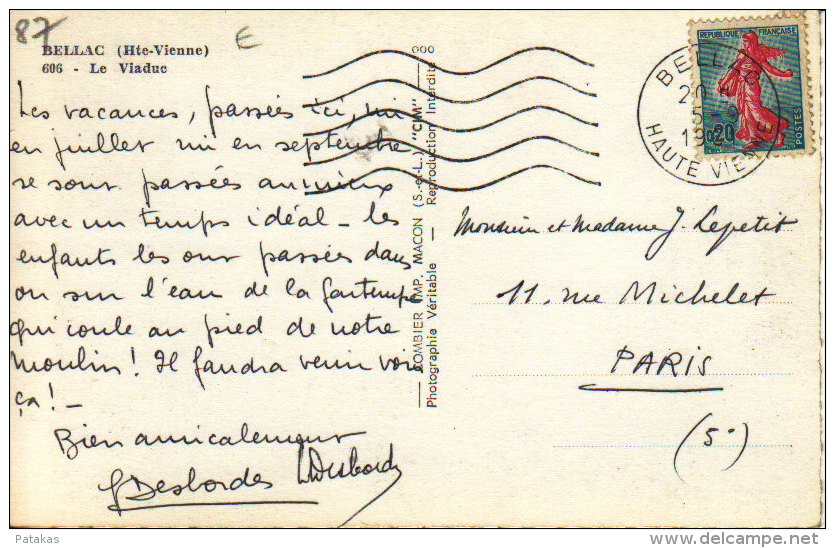 87
E
BELLAC (Hte-Vienne)
606 - Le Viaduc
Les vacances, passées ici, mi
en juillet mi en septembre
se sont passées au mieux
avec un temps idéal - les
enfants les ont passées dans
ou sur l'eau de la Gartempe
qui coule au pied de notre
moulin! Il faudra venir voir
ça! -
Bien amicalement
Desbordes Desbordes
COMBIER IMP. MACON (S.-et-L.) "CIM"
Photographie Véritable — Reproduction Interdite
REPUBLIQUE FRANÇAISE
0,20
POSTES
BELLAC
20
15-9
19
HAUTE VIENNE
Monsieur et Madame J. Lepetit
11. rue Michelet
PARIS
(5e)
Patakas
www.delcampe.net